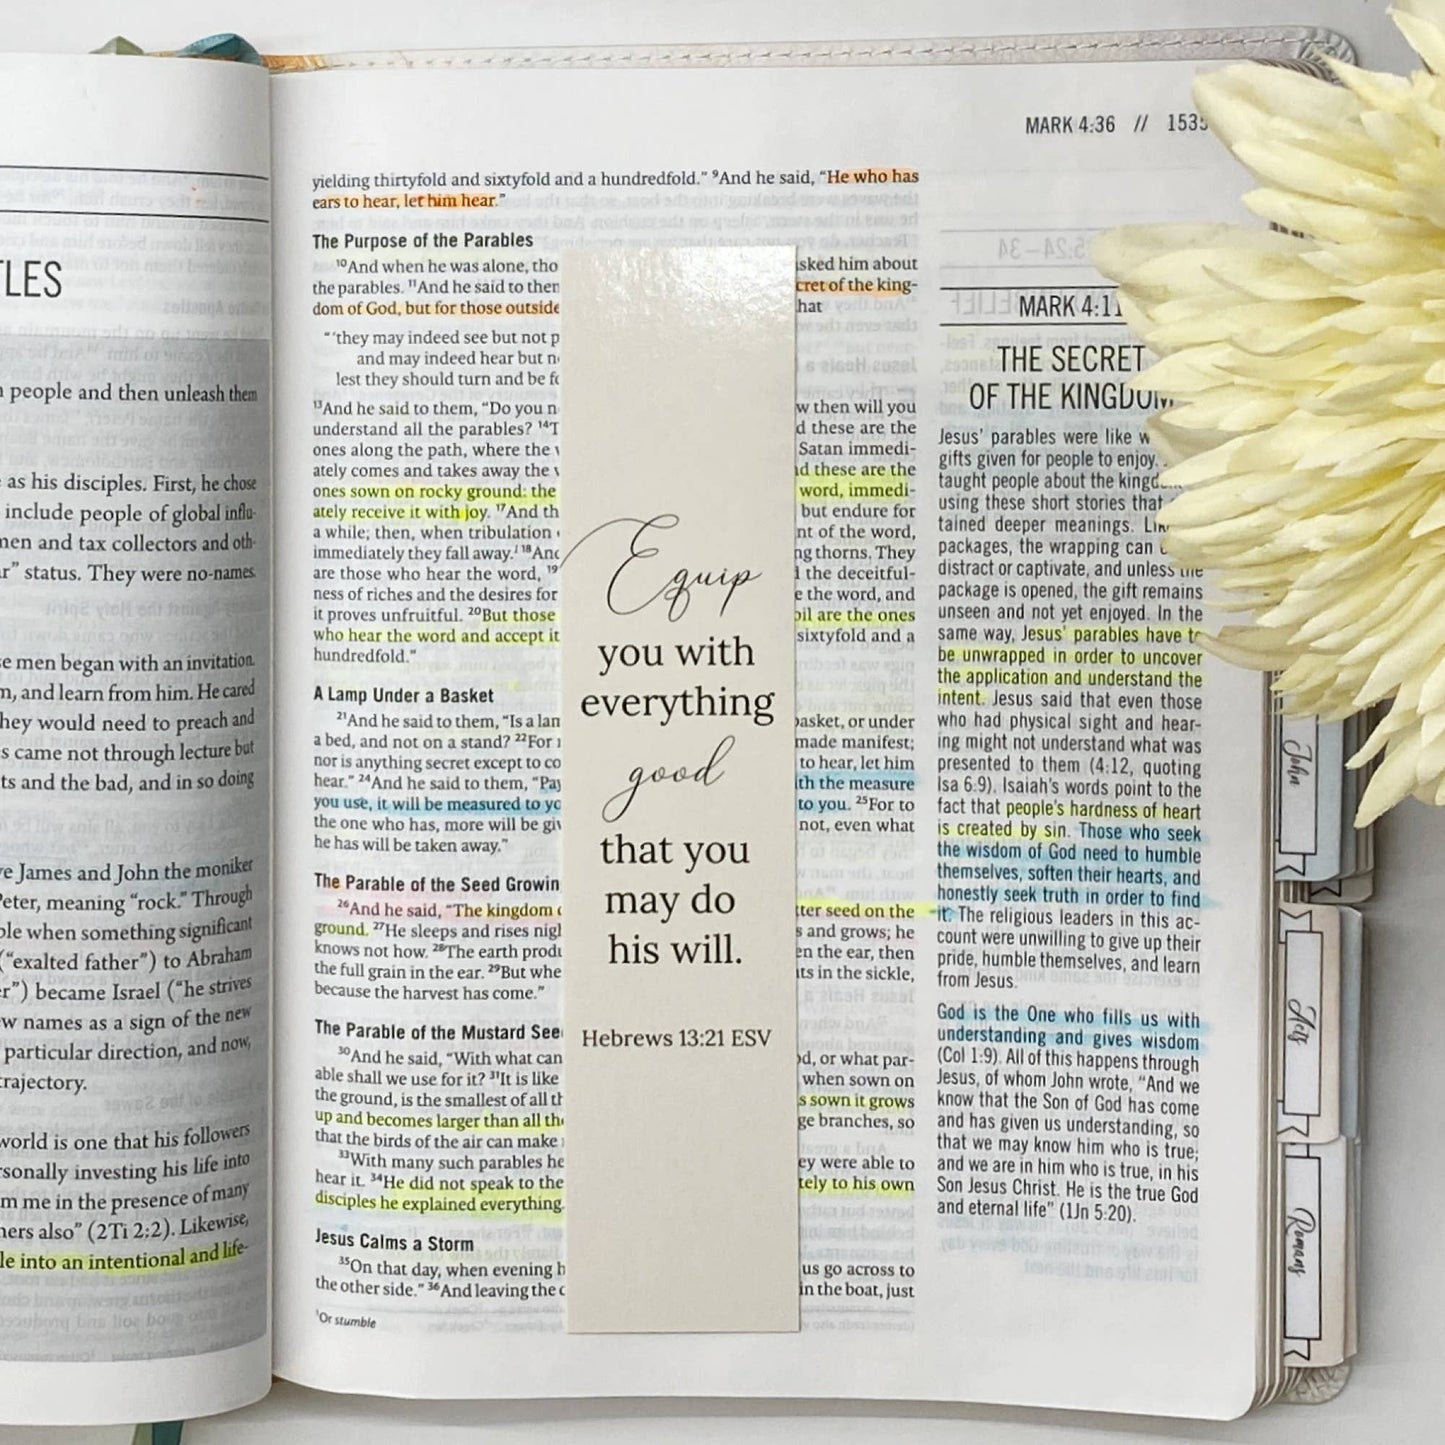 TLES
people and then unleash them
as his disciples. First, he chose
include people of global influ-
men and tax collectors and oth-
status. They were no-names.
se men began with an invitation.
and learn from him. He cared
they would need to preach and
came not through lecture but
ts and the bad, and in so doing
James and John the moniker
Peter, meaning “rock.” Through
when something significant
(“exalted father”) to Abraham
became Israel (“he strives
new names as a sign of the new
particular direction, and now,
trajectory.
world is one that his followers
personally investing his life into
me in the presence of many
also” (2Ti 2:2). Likewise,
into an intentional and life-
MARK 4:36 // 1535
yielding thirtyfold and sixtyfold and a hundredfold.” ⁹And he said, “He who has
ears to hear, let him hear.”
The Purpose of the Parables
¹⁰And when he was alone, asked him about
the parables. ¹¹And he said to secret of the king-
dom of God, but for those outside
“‘they may indeed see but not
and may indeed hear but
lest they should turn and be
¹³And he said to them, “Do you then will you
understand all the parables? these are the
ones along the path, where the Satan immedi-
ately comes and takes away the these are the
ones sown on rocky ground: the word, immedi-
ately receive it with joy. ¹⁷And but endure for
a while; then, when tribulation of the word,
immediately they fall away. thorns. They
are those who hear the word, ¹⁹ the deceitful-
ness of riches and the desires for the word, and
it proves unfruitful. ²⁰But those are the ones
who hear the word and accept it sixtyfold and a
hundredfold.”
A Lamp Under a Basket
²¹And he said to them, “Is a basket, or under
a bed, and not on a stand? ²²For made manifest;
nor is anything secret except to to hear, let him
hear.” ²⁴And he said to them, the measure
you use, it will be measured to to you. ²⁵For to
the one who has, more will be not, even what
he has will be taken away.”
The Parable of the Seed
²⁶And he said, “The kingdom seed on the
ground. ²⁷He sleeps and rises and grows; he
knows not how. ²⁸The earth the ear, then
the full grain in the ear. ²⁹But in the sickle,
because the harvest has come.”
The Parable of the Mustard
³⁰And he said, “With what can or what par-
able shall we use for it? ³¹It is like when sown on
the ground, is the smallest of all sown it grows
up and becomes larger than all branches, so
that the birds of the air can make
³³With many such parables he they were able to
hear it. ³⁴He did not speak to to his own
disciples he explained everything.
Jesus Calms a Storm
³⁵On that day, when evening us go across to
the other side.” ³⁶And leaving the in the boat, just
¹Or stumble
Equip
you with
everything
good
that you
may do
his will.
Hebrews 13:21 ESV
MARK 4:11
THE SECRET
OF THE KINGDOM
Jesus’ parables were like
gifts given for people to enjoy.
taught people about the
using these short stories that
tained deeper meanings.
packages, the wrapping can
distract or captivate, and unless the
package is opened, the gift remains
unseen and not yet enjoyed. In the
same way, Jesus’ parables have to
be unwrapped in order to uncover
the application and understand the
intent. Jesus said that even those
who had physical sight and hear-
ing might not understand what was
presented to them (4:12, quoting
Isa 6:9). Isaiah’s words point to the
fact that people’s hardness of heart
is created by sin. Those who seek
the wisdom of God need to humble
themselves, soften their hearts, and
honestly seek truth in order to find
it. The religious leaders in this ac-
count were unwilling to give up their
pride, humble themselves, and learn
from Jesus.
God is the One who fills us with
understanding and gives wisdom
(Col 1:9). All of this happens through
Jesus, of whom John wrote, “And we
know that the Son of God has come
and has given us understanding, so
that we may know him who is true;
and we are in him who is true, in his
Son Jesus Christ. He is the true God
and eternal life” (1Jn 5:20).
John
Acts
Romans